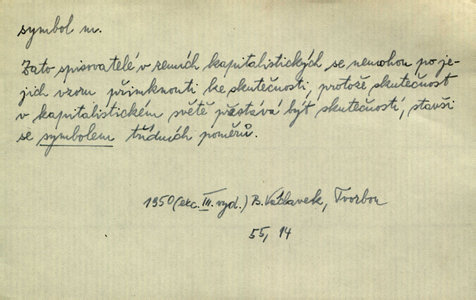 symbol m.
Zato spisovatelé v zemích kapitalistických se nemohou po je-
jich vzoru přimknouti ke skutečnosti, protože skutečnost
v kapitalistickém světě přestává být skutečností, stavši
se symbolem třídních poměrů.
1950 (exc. III. vyd.) B. Václavek, Tvorbou
55, 14